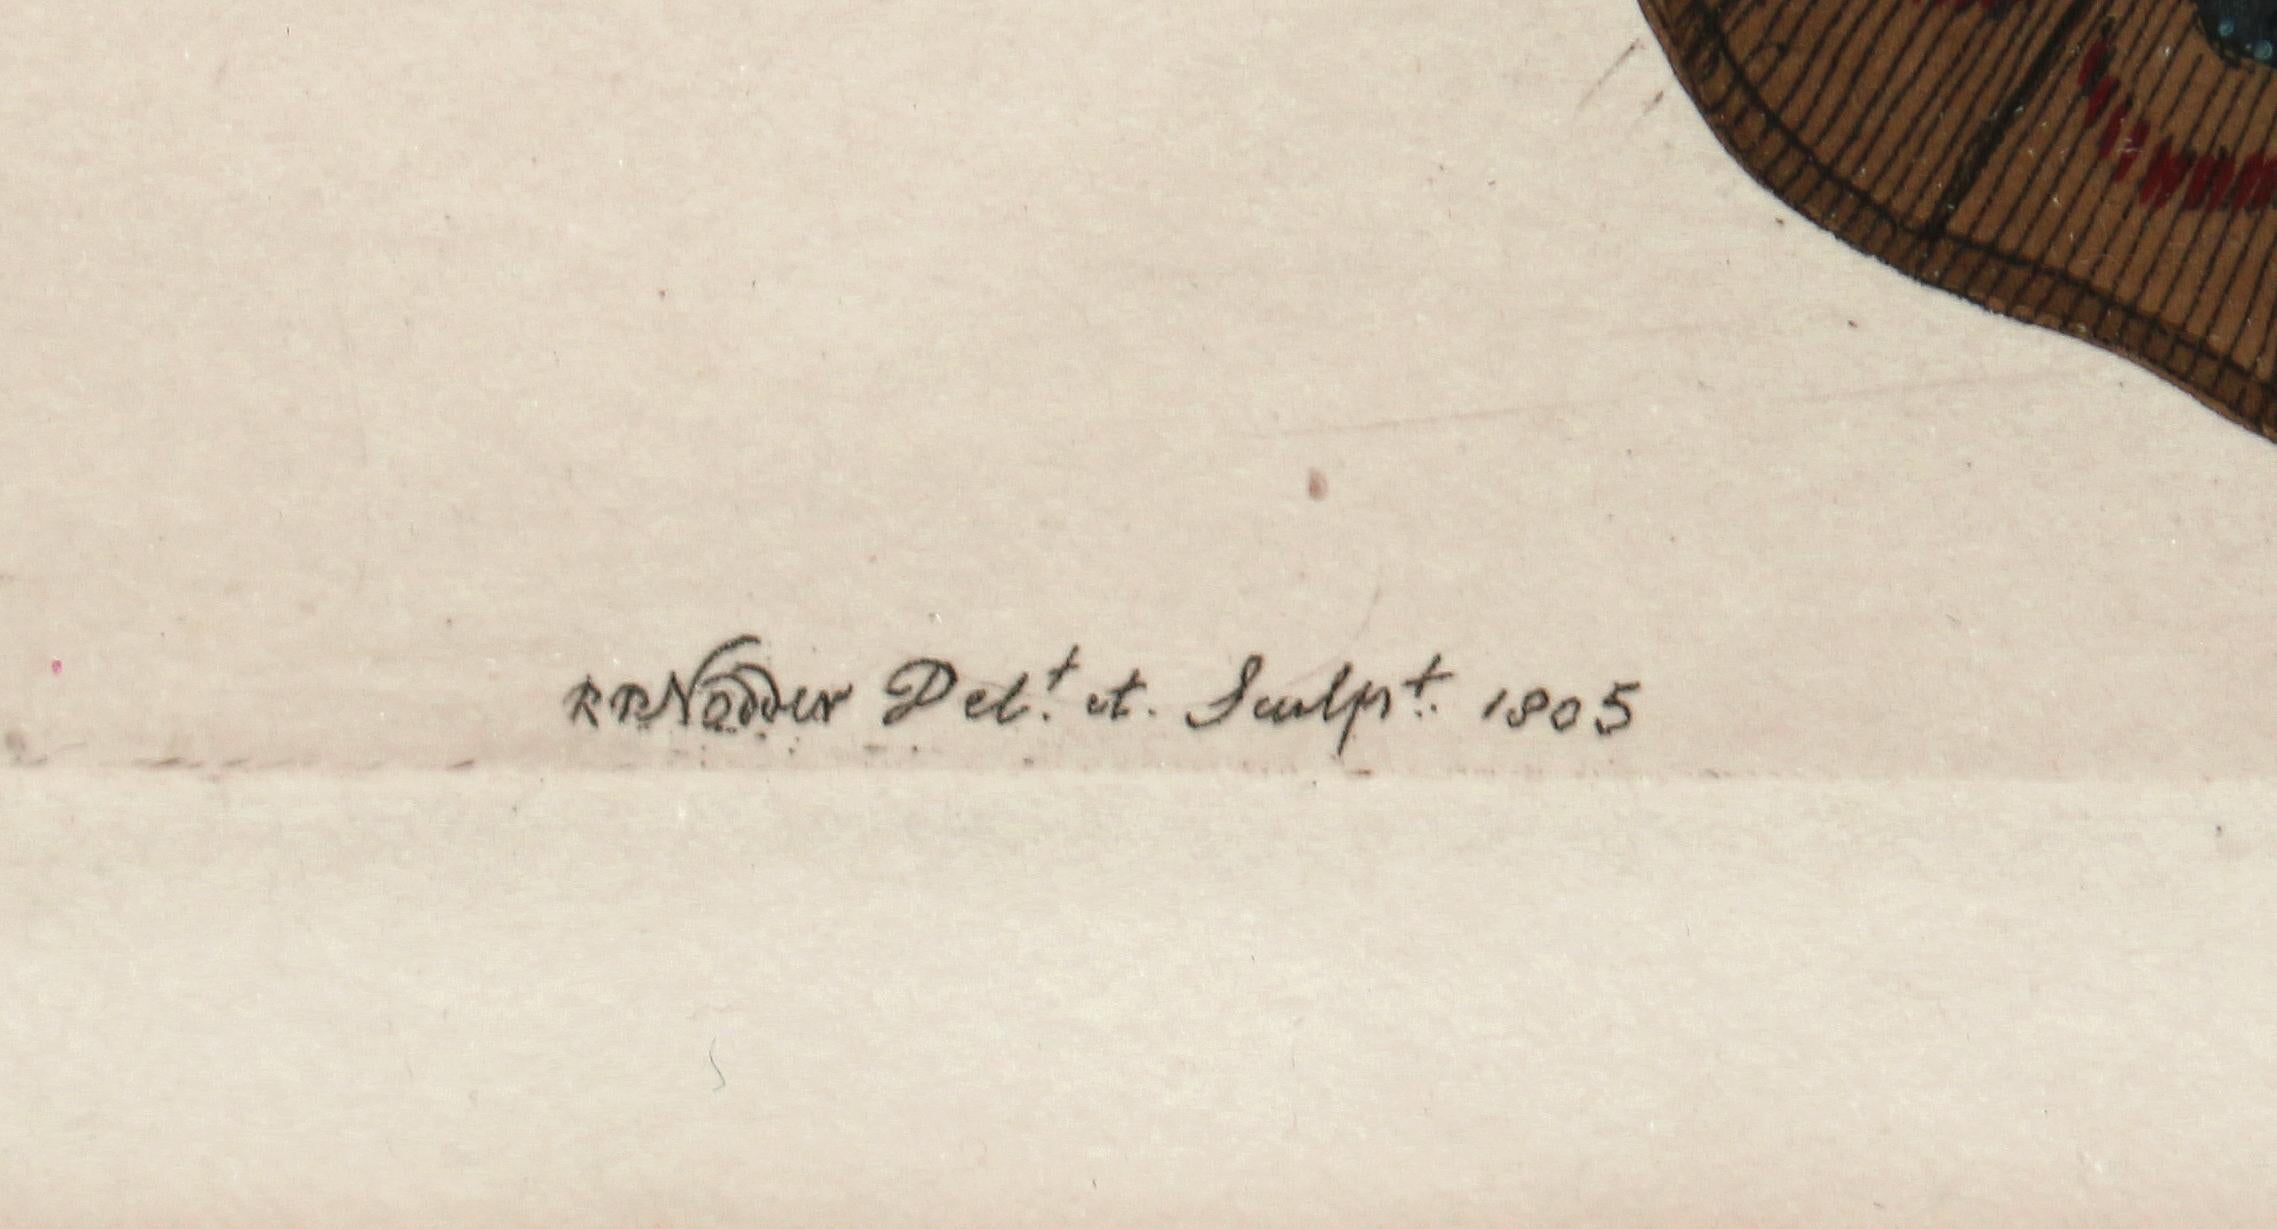 RP Nodder Del.t et. Sculpt. 1805